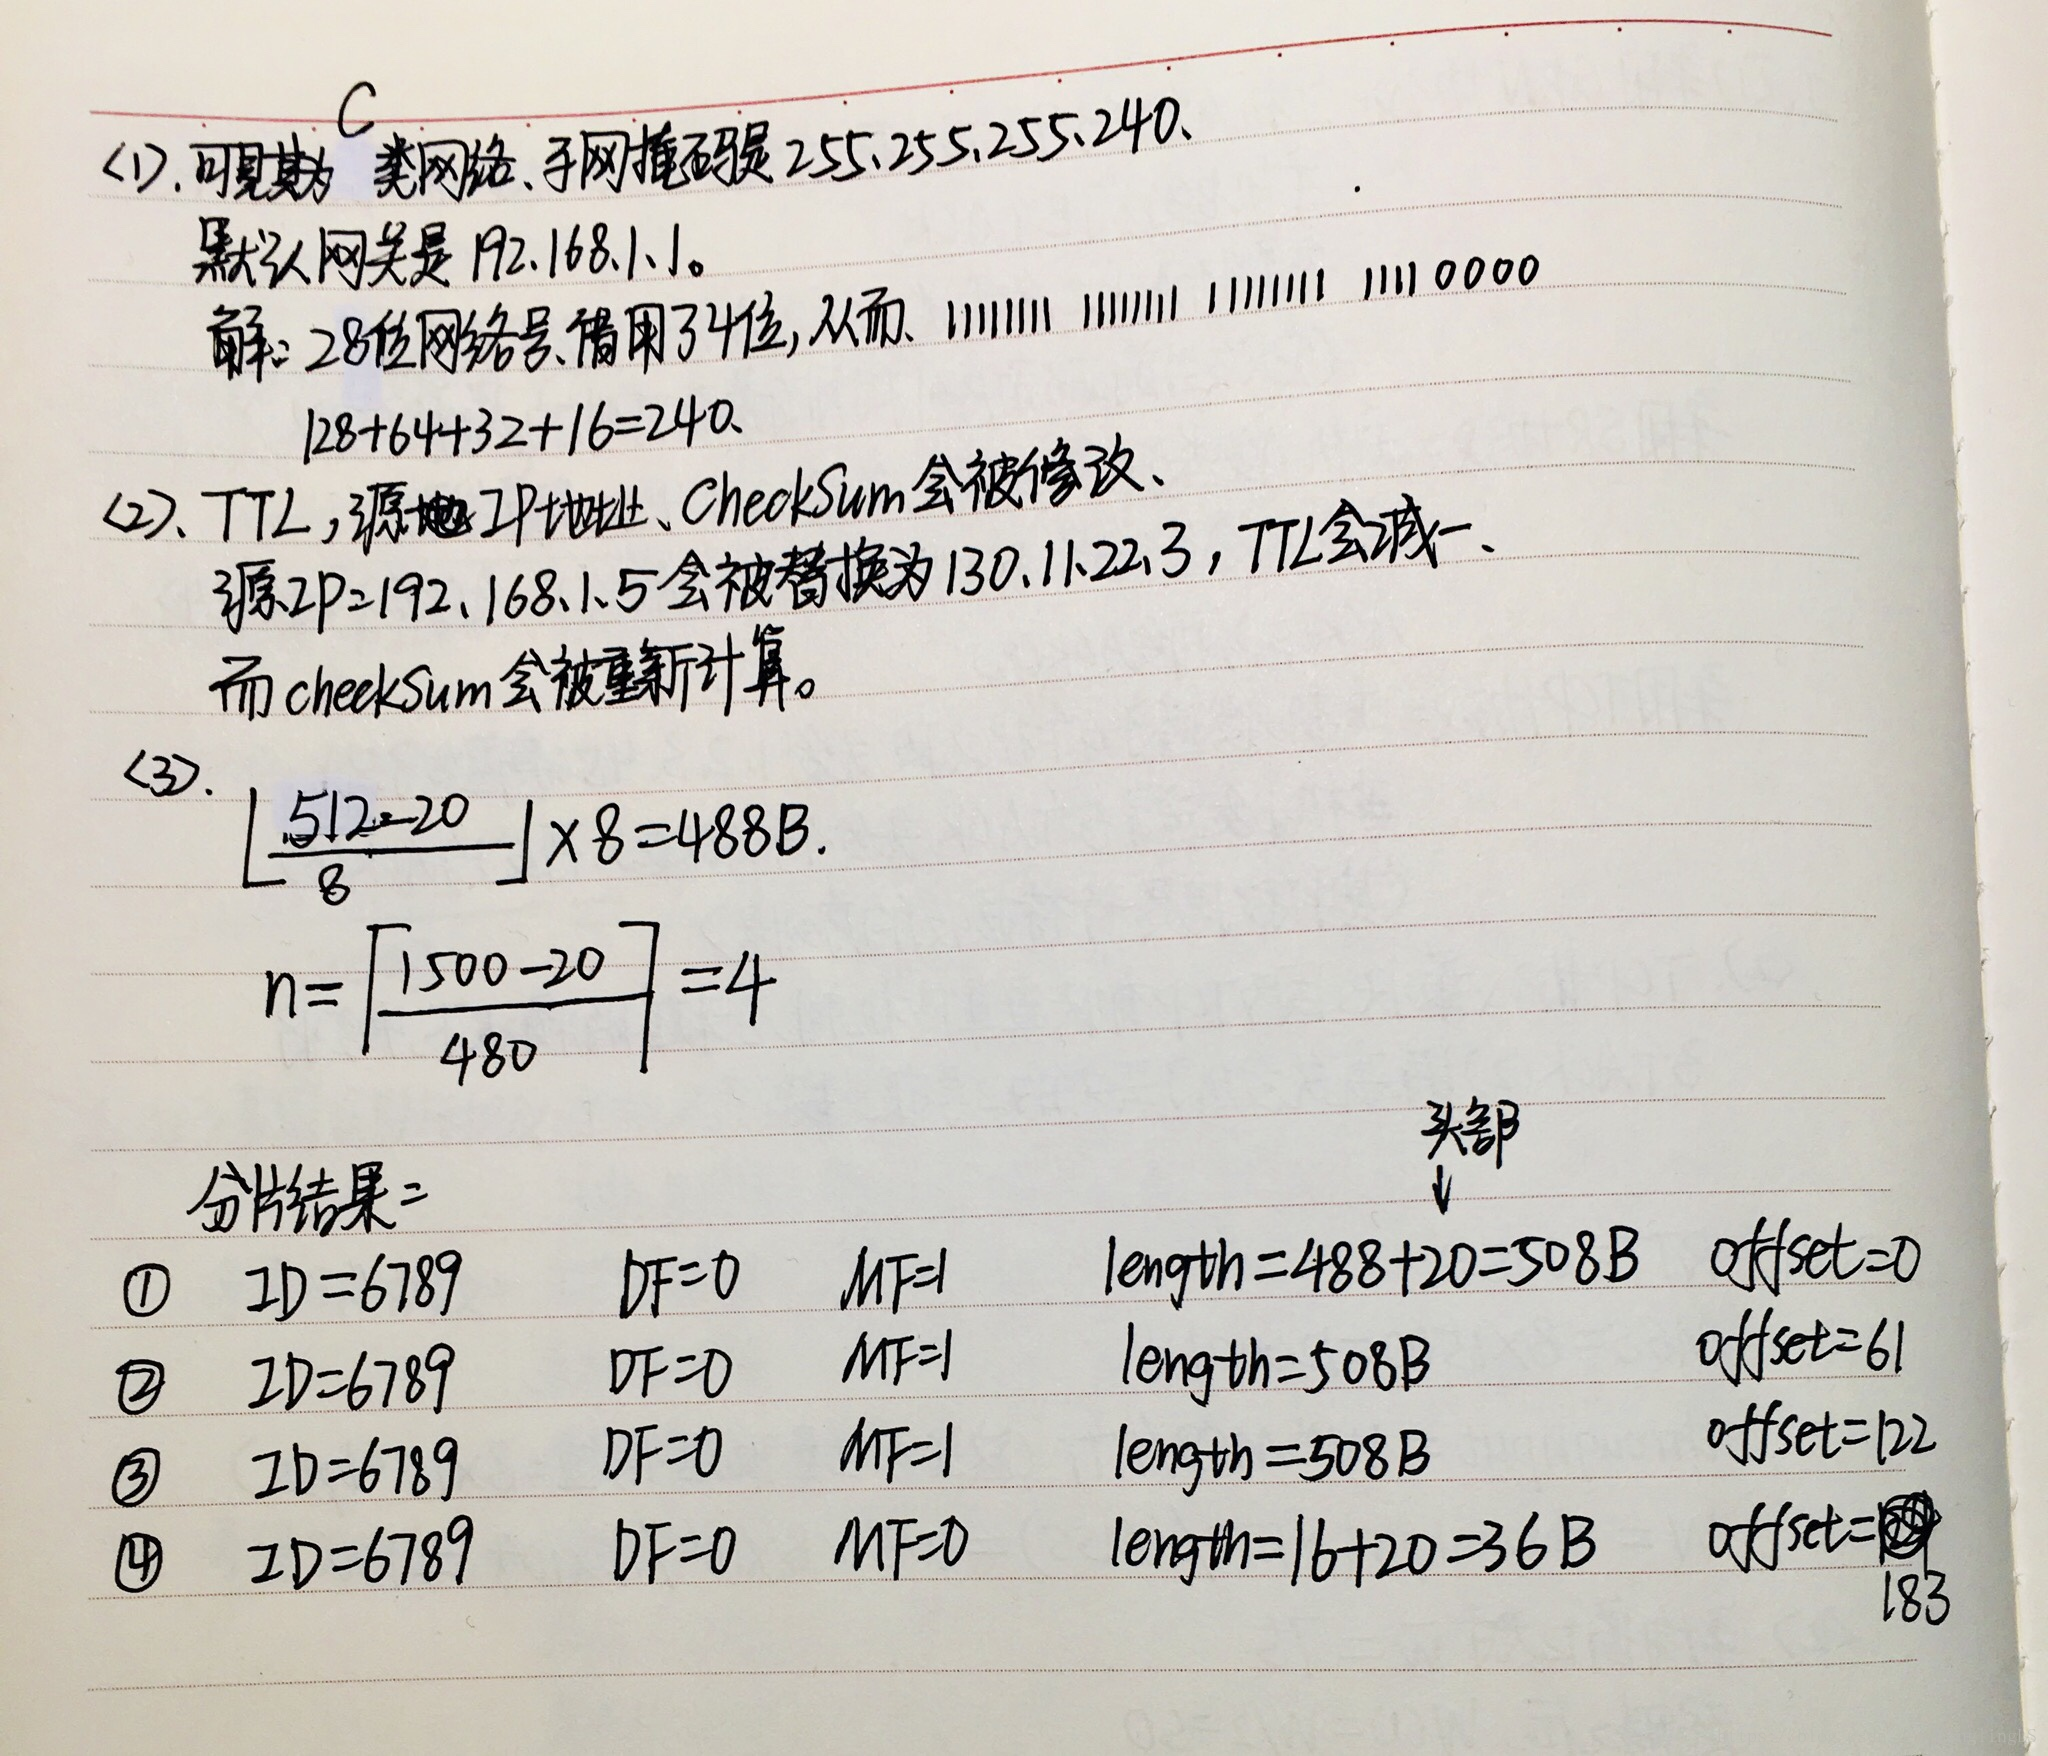 C
<1>.可见其为 类网络、子网掩码是255.255.255.240、
默认网关是192.168.1.1。
解:28位网络号、借用了4位,从而、11111111 11111111 11111111 11110000
128+64+32+16=240、
<2>、TTL,源 IP地址、CheckSum会被修改、
源IP=192.168.1.5会被替换为130.11.22.3,TTL会减一、
而checkSum会被重新计算。
<3>.
⌊(512-20)/8⌋×8=488B.
n=⌈(1500-20)/480⌉=4
头部
↓
分片结果:
① ID=6789 DF=0 MF=1 length=488+20=508B offset=0
② ID=6789 DF=0 MF=1 length=508B offset=61
③ ID=6789 DF=0 MF=1 length=508B offset=122
④ ID=6789 DF=0 MF=0 length=16+20=36B offset=
183